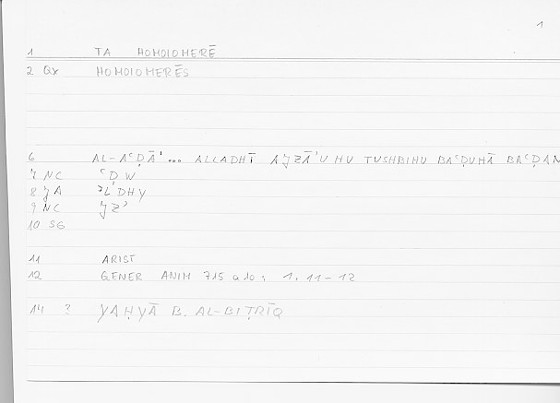 1
1 TA HOMOIOMERĒ
2 QX HOMOIOMERĒS
6 AL-AʿḌĀʾ... ALLADHĪ AJZĀʾUHU TUSHBIHU BAʿḌUHĀ BAʿḌAN
7 NC ʿḌW
8 JA ʾLʾDHY
9 NC JZʾ
10 SG
11 ARIST
12 GENER ANIM 715 a 10; 1. 11-12
14 ? YAḤYĀ B. AL-BIṬRĪQ